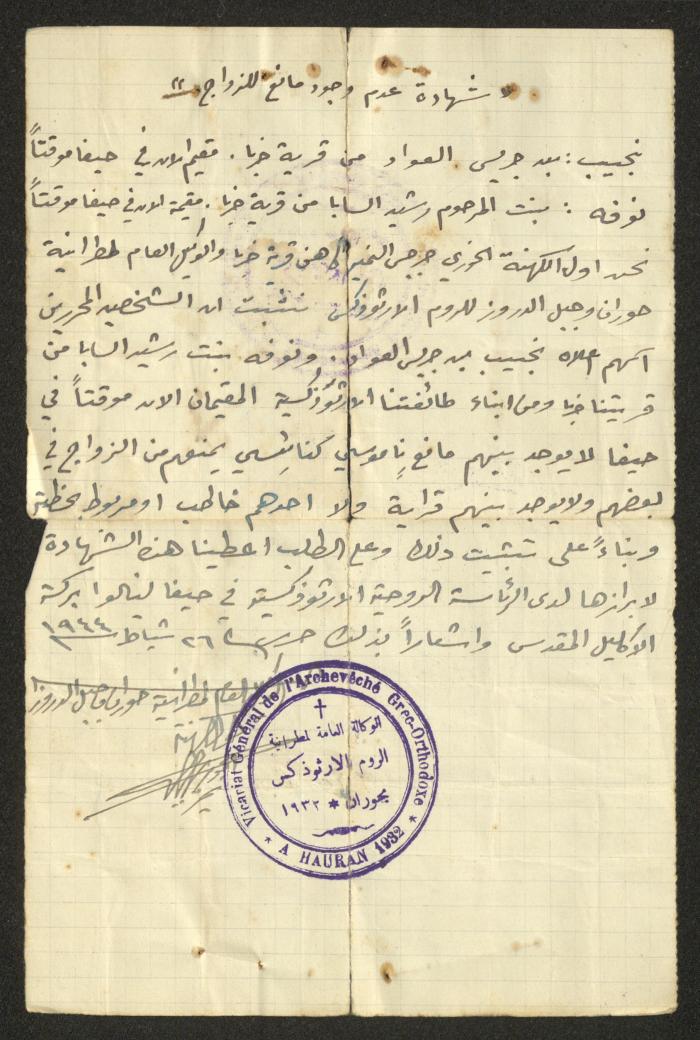 "شهادة عدم وجود مانع للزواج"
نجيب: بن جريس العواد من قرية خربا. مقيم الان في حيفا موقتاً
نوفه: بنت المرحوم رشيد السابا من قرية خربا. مقيمة الان في حيفا موقتاً
نحن اول الكهنة الخوري جرجس كاهن قرية خربا والوكيل العام لمطرانية
حوران وجبل الدروز للروم الارثوذكس نثبت ان الشخصين المحررين
اسمهم اعلاه نجيب بن جريس العواد. ونوفه بنت رشيد السابا من
قريتنا خربا ومن ابناء طائفتنا الارثوذكسية المقيمان الان موقتاً في
حيفا لا يوجد بينهم مانع ناموسي كنائسي يمنعهم من الزواج في
بعضهم ولا يوجد بينهم قرابة ولا احدهم خاطب او مربوط بخطبة
وبناءً على تثبيت ذلك وعلى الطلب اعطينا هذه الشهادة
لابرازها لدى الرئاسة الروحية الارثوذكسية في حيفا لينالوا بركة
الاكليل المقدس واشعاراً بذلك حرر في ٢٦ شباط ١٩٤٤
العام لمطرانية حوران وجبل الدروز
Vicariat Général de l'Archevêché Grec-Orthodoxe
الوكالة العامة لمطرانية
الروم الارثوذكس
بحوران * ١٩٣٢
* A HAURAN 1932 *